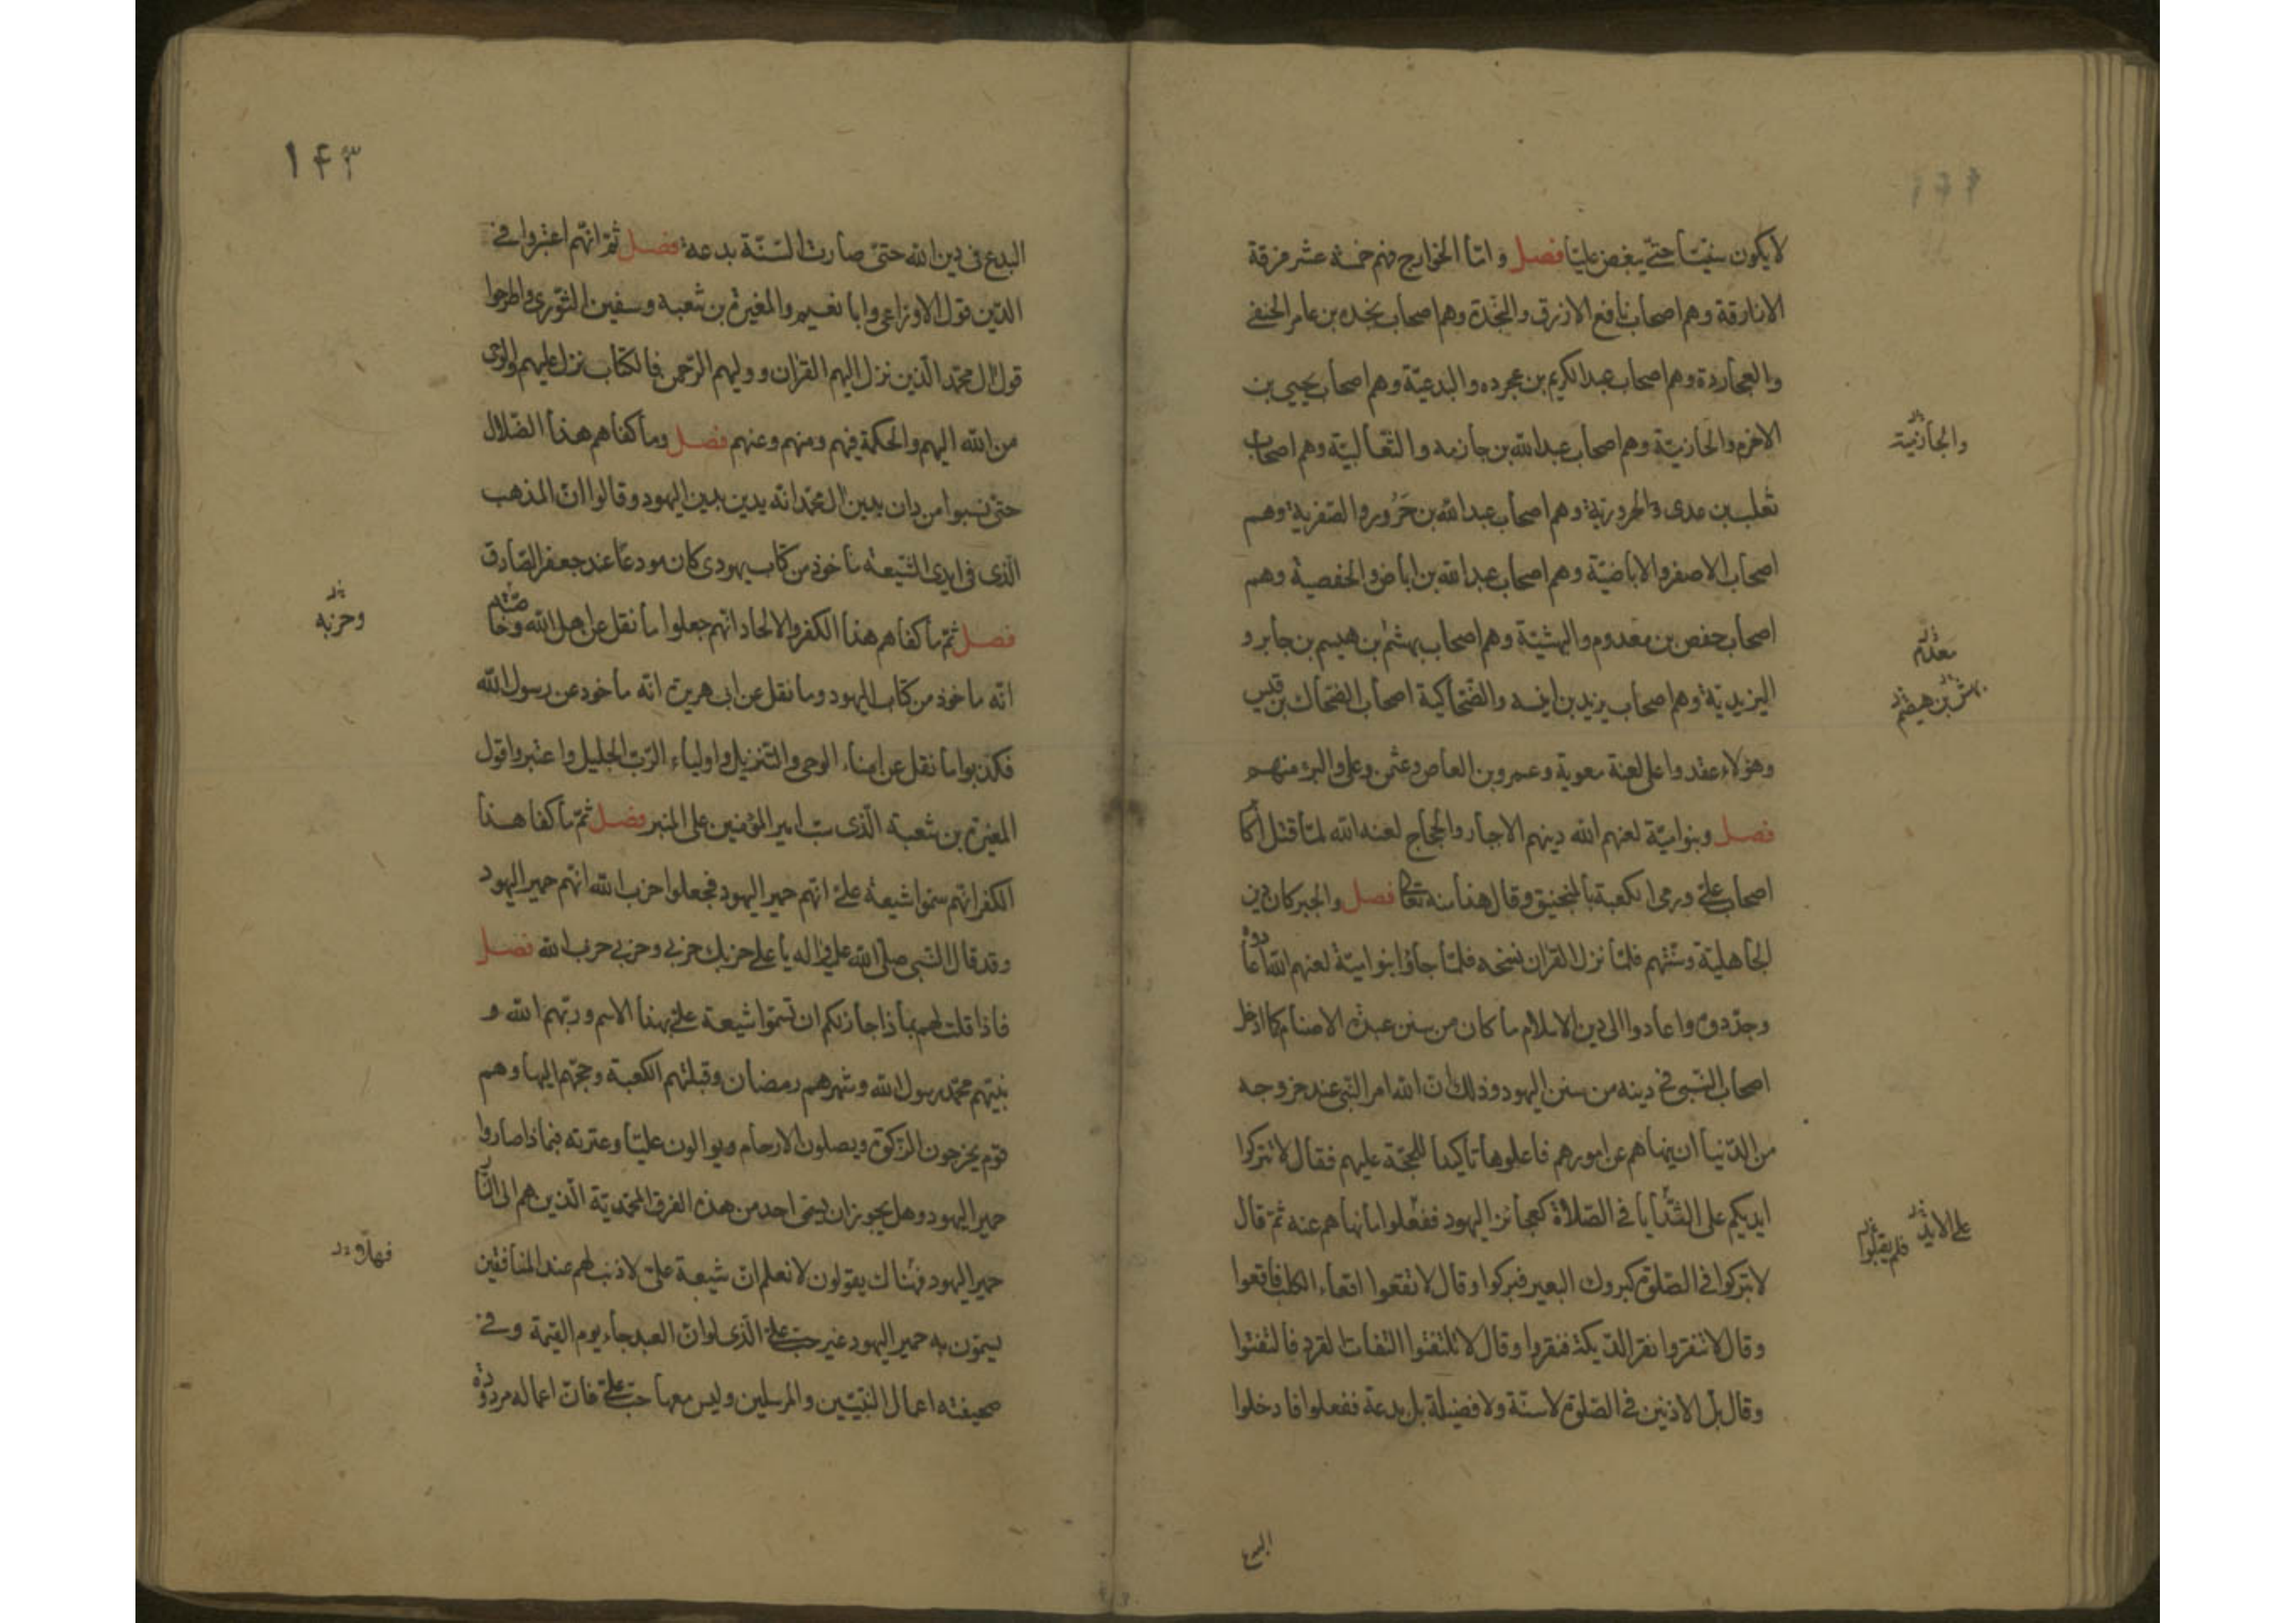 لا يكون سنيّا حتّى يبغض عليّا فصل وامّا الخوارج فهم خمسة عشر فرقة
الازارقة وهم اصحاب نافع الازرق والنجدة وهم اصحاب نجده بن عامر الحنفي
والعجاردة وهم اصحاب عبد الكريم بن عجرده والبدعيّة وهم اصحاب يحيى بن
الاخرم والحازنيّة وهم اصحاب عبد الله بن جازمه والثعالبيّة وهم اصحاب
والجازنية
ثعلب بن عدى والحروريّة وهم اصحاب عبد الله بن حَرُور والصفرية وهم
اصحاب الاصفر والاباضيّة وهم اصحاب عبد الله بن اباض والحفصية وهم
اصحاب حفص بن مقدوم والبهشيّة وهم اصحاب بهشم بن هيسم بن جابر و
معدم
اليزيديّة وهم اصحاب يزيد بن انيسه والضّحاكية اصحاب الضحاك بن قيس
بهش بن هيضم
وهؤلاء عقدوا على لعنة معوية وعمرو بن العاص وعثمن وعلى والبرء منهم
فصل وبنو اميّة لعنهم الله دينهم الاجبار والحجاج لعنه الله لمّا قتل اكا
اصحاب علىّ ورمى الكعبة بالمنجنيق وقال هذا منه تعا فصل والجبر كان دين
الجاهليّة وسنّتهم فلمّا نزل القران نسخه فلمّا جاؤا بنو اميّة لعنهم الله اعادوه
وجدّدوه واعادوا الى دين الاسلام ما كان من سنن عبدة الاصنام كما ادخل
اصحاب النّبى فى دينه من سنن اليهود وذلك انّ الله امر النّبى عند خروجه
من الدّنيا ان ينهاهم عن امورهم فاعلوها تاكيدا للحجّة عليهم فقال لا تتركوا
ايديكم على الثّدايا فى الصّلاة كعجائز اليهود ففعلوا ما نهاهم عنه ثمّ قال
على الايد فلم يقبلوا
لا تبركوا فى الصّلوة كبروك البعير فبركوا وقال لا تقعوا اقعاء الكلب فاقعوا
وقال لا تنقروا نقر الدّيكة فنقروا وقال لا تلتفتوا التفات القرد فالتفتوا
وقال بل الاذنين فى الصّلوة لا سنّة ولا فضيلة بل بدعة ففعلوا فادخلوا
البدع
۱۴۳
البدع فى دين الله حتّى صارت السّنّة بدعة فصل ثمّ انّهم اعتبروا فى
الدّين قول الاوزاعى وابا نعيم والمغيرة بن شعبه وسفين الثّورى واطرحوا
قول ال محمّد الّذين نزل اليهم القران ووليهم الرّحمن فالكتاب نزل عليهم والوحى
من الله اليهم والحكمة فيهم ومنهم وعنهم فصل وما كفاهم هذا الضّلال
حتّى نسبوا من دان بدين ال محمّد انّه يدين بدين اليهود وقالوا انّ المذهب
الّذى فى ايدى الشّيعة ماخوذ من كتاب يهودى كان مودعًا عند جعفر الصّادق
فصل ثمّ ما كفاهم هذا الكفر والالحاد انّهم جعلوا ما نقل عن اهل الله وخاصّته
وحزبه
انّه ماخوذ من كتاب اليهود وما نقل عن ابى هريرة انّه ماخوذ عن رسول الله
فكذبوا ما نقل عن امناء الوحى والتّنزيل واولياء الرّبّ الجليل واعتبروا قول
المغيرة بن شعبة الّذى سبّ امير المؤمنين على المنبر فصل ثمّ ما كفا هذا
الكفر انّهم سمّوا شيعة علىّ انّهم حمير اليهود فجعلوا حزب الله انّهم حمير اليهود
وقد قال النّبى صلّى الله عليه واله يا على حزبك حزبى وحزبى حزب الله فصل
فاذا قلت لهم بماذا جاز لكم ان تسمّوا شيعة علىّ بهذا الاسم وربّهم الله و
نبيّهم محمّد رسول الله وشهرهم رمضان وقبلتهم الكعبة وحجّهم اليها وهم
قوم يخرجون الزّكوة ويصلون الارحام ويوالون عليّا وعترته فبماذا صاروا
حمير اليهود وهل يجوز ان يسمى احد من هذه الفرق المحمّديّة الّذين هم الى النّار
حمير اليهود فهناك يقولون لا نعلم انّ شيعة علىّ لا ذنب لهم عند المنافقين
يسمّون به حمير اليهود غير حبّ علىّ الّذى لو انّ العبد جاء يوم القيمة وفى
صحيفته اعمال النّبيّين والمرسلين وليس معها حبّ علىّ فانّ اعماله مردودة